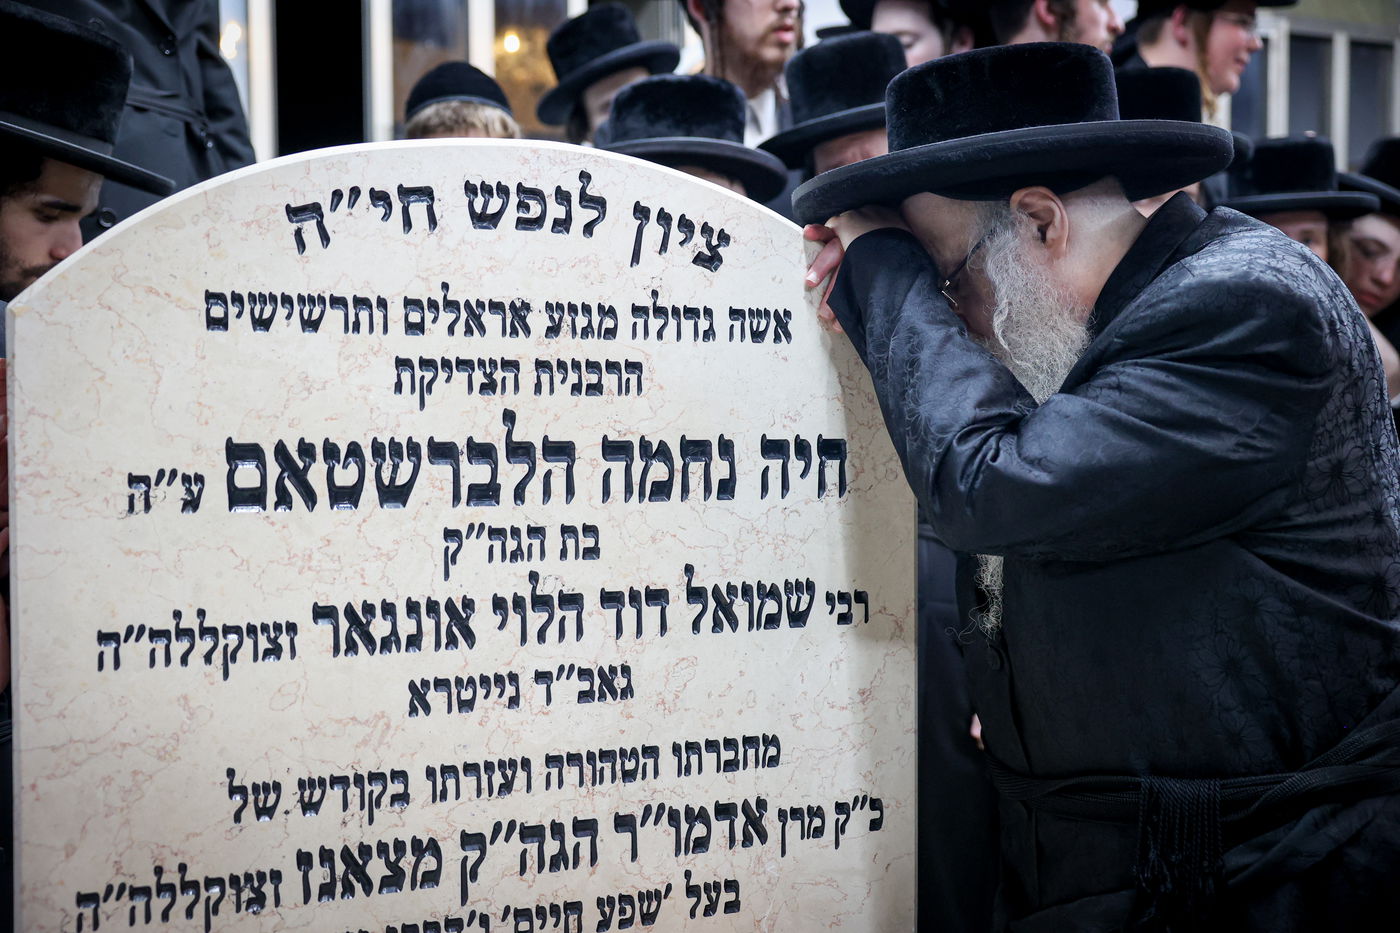 ציון לנפש חי״ה
אשה גדולה מגזע אראלים ותרשישים
הרבנית הצדיקת
חיה נחמה הלברשטאם ע״ה
בת הגה״ק
רבי שמואל דוד הלוי אונגאר זצוקללה״ה
גאב״ד נייטרא
מחברתו הטהורה ועזרתו בקודש של
כ״ק מרן אדמו״ר הגה״ק מצאנז זצוקללה״ה
בעל ׳שפע חיים׳